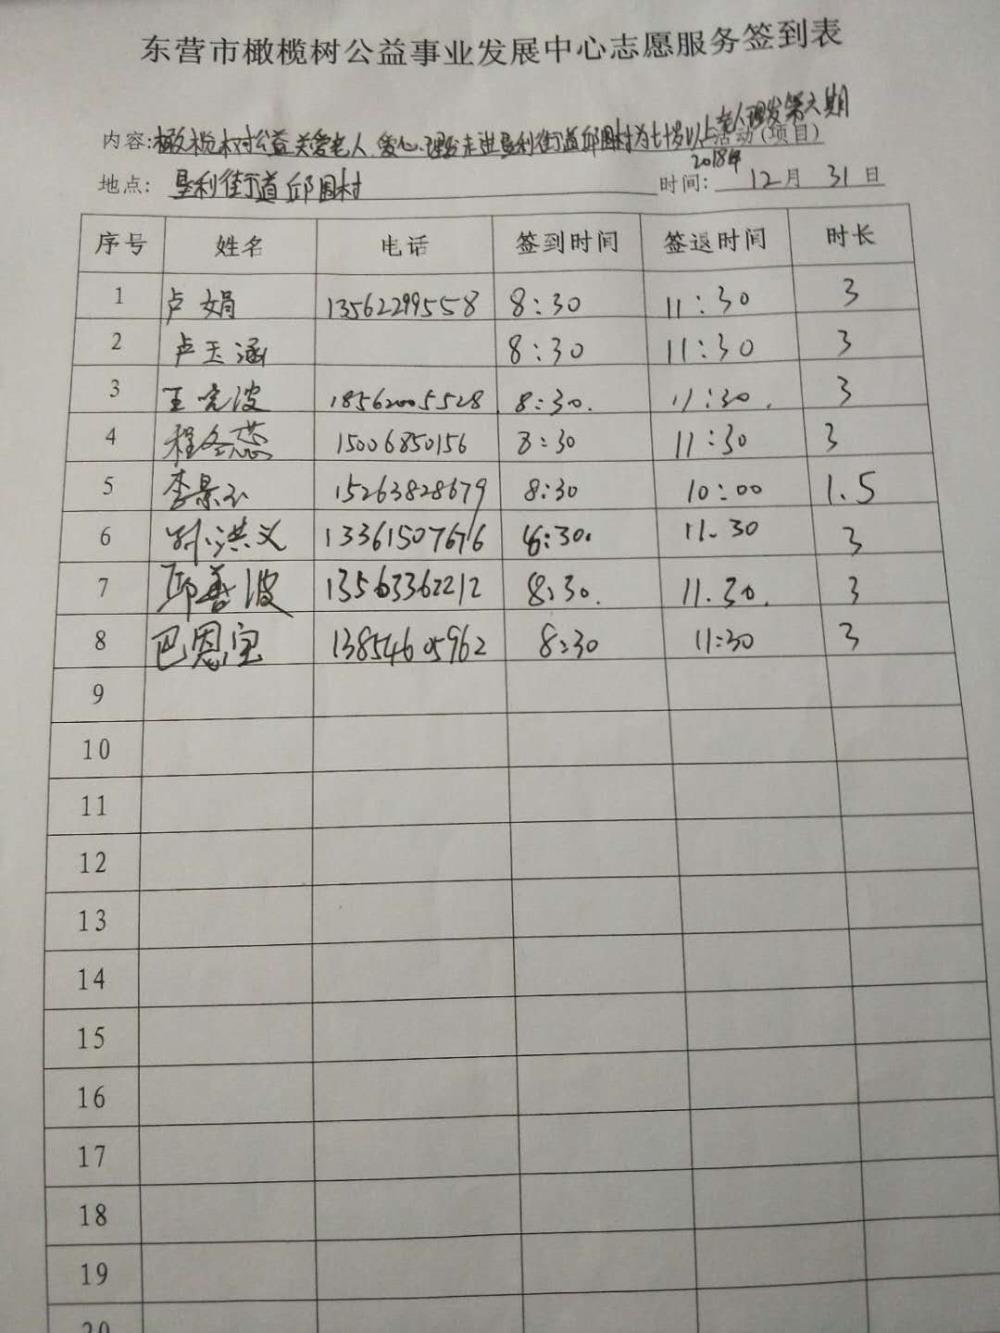 东营市橄榄树公益事业发展中心志愿服务签到表
老人理发第六期
内容:橄榄树公益关爱老人、爱心理发走进垦利街道邱围村为七十岁以上活动(项目)
2018年
地点: 垦利街道邱围村 时间: 12月31日
序号 姓名 电话 签到时间 签退时间 时长
1 卢娟 13562299558 8:30 11:30 3
2 卢玉涵 8:30 11:30 3
3 王 波 18562005528 8:30. 11:30. 3
4 程冬蕊 15006850156 8:30 11:30 3
5 李景 15263828679 8:30 10:00 1.5
6 孙洪义 13361507676 8:30. 11.30 3
7 邱善波 13563362212 8:30. 11.30. 3
8 巴恩宝 13854605962 8:30 11:30 3
9
10
11
12
13
14
15
16
17
18
19
20